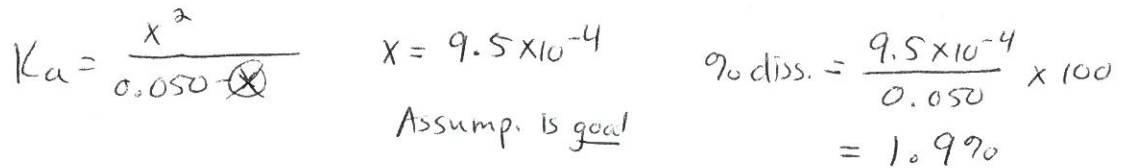 Ka = x² / 0.050 - x
x = 9.5 × 10⁻⁴
Assump. is good
% diss. = 9.5 × 10⁻⁴ / 0.050 × 100
= 1.9%